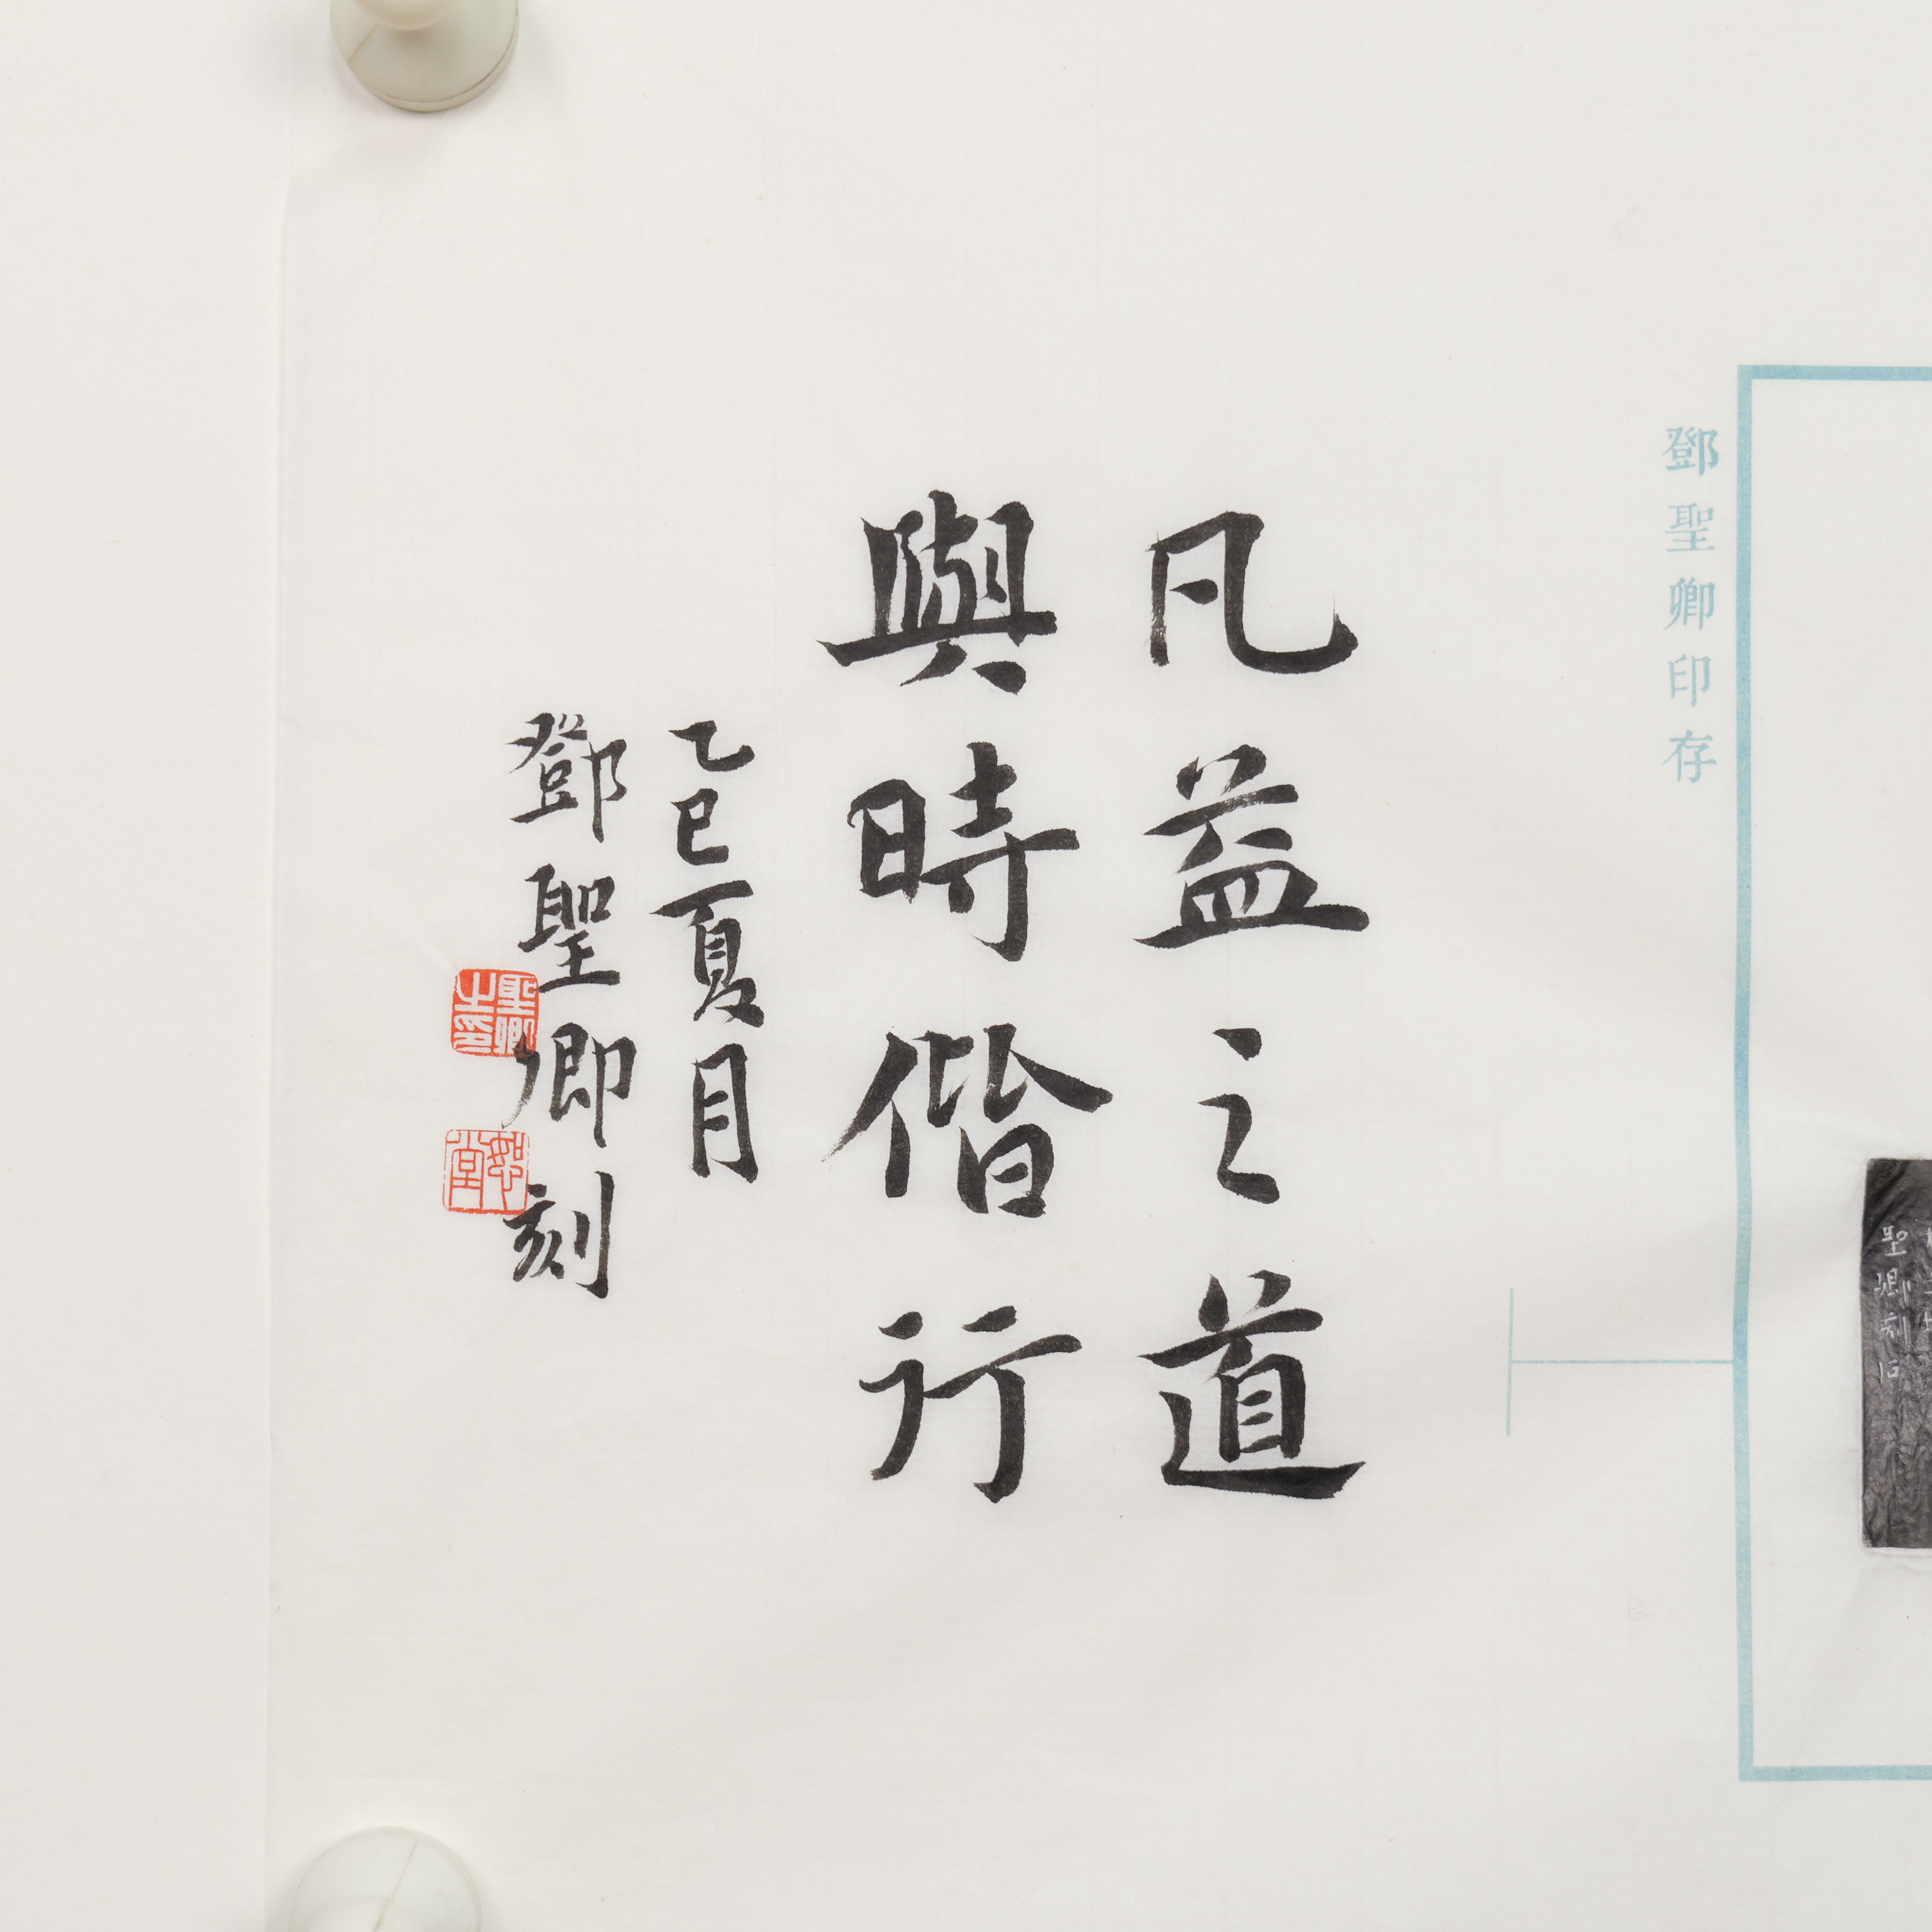 鄧聖卿印存
凡益之道
與時偕行
乙巳夏月
鄧聖卿刻
聖卿之印
恕堂
聖卿刻石